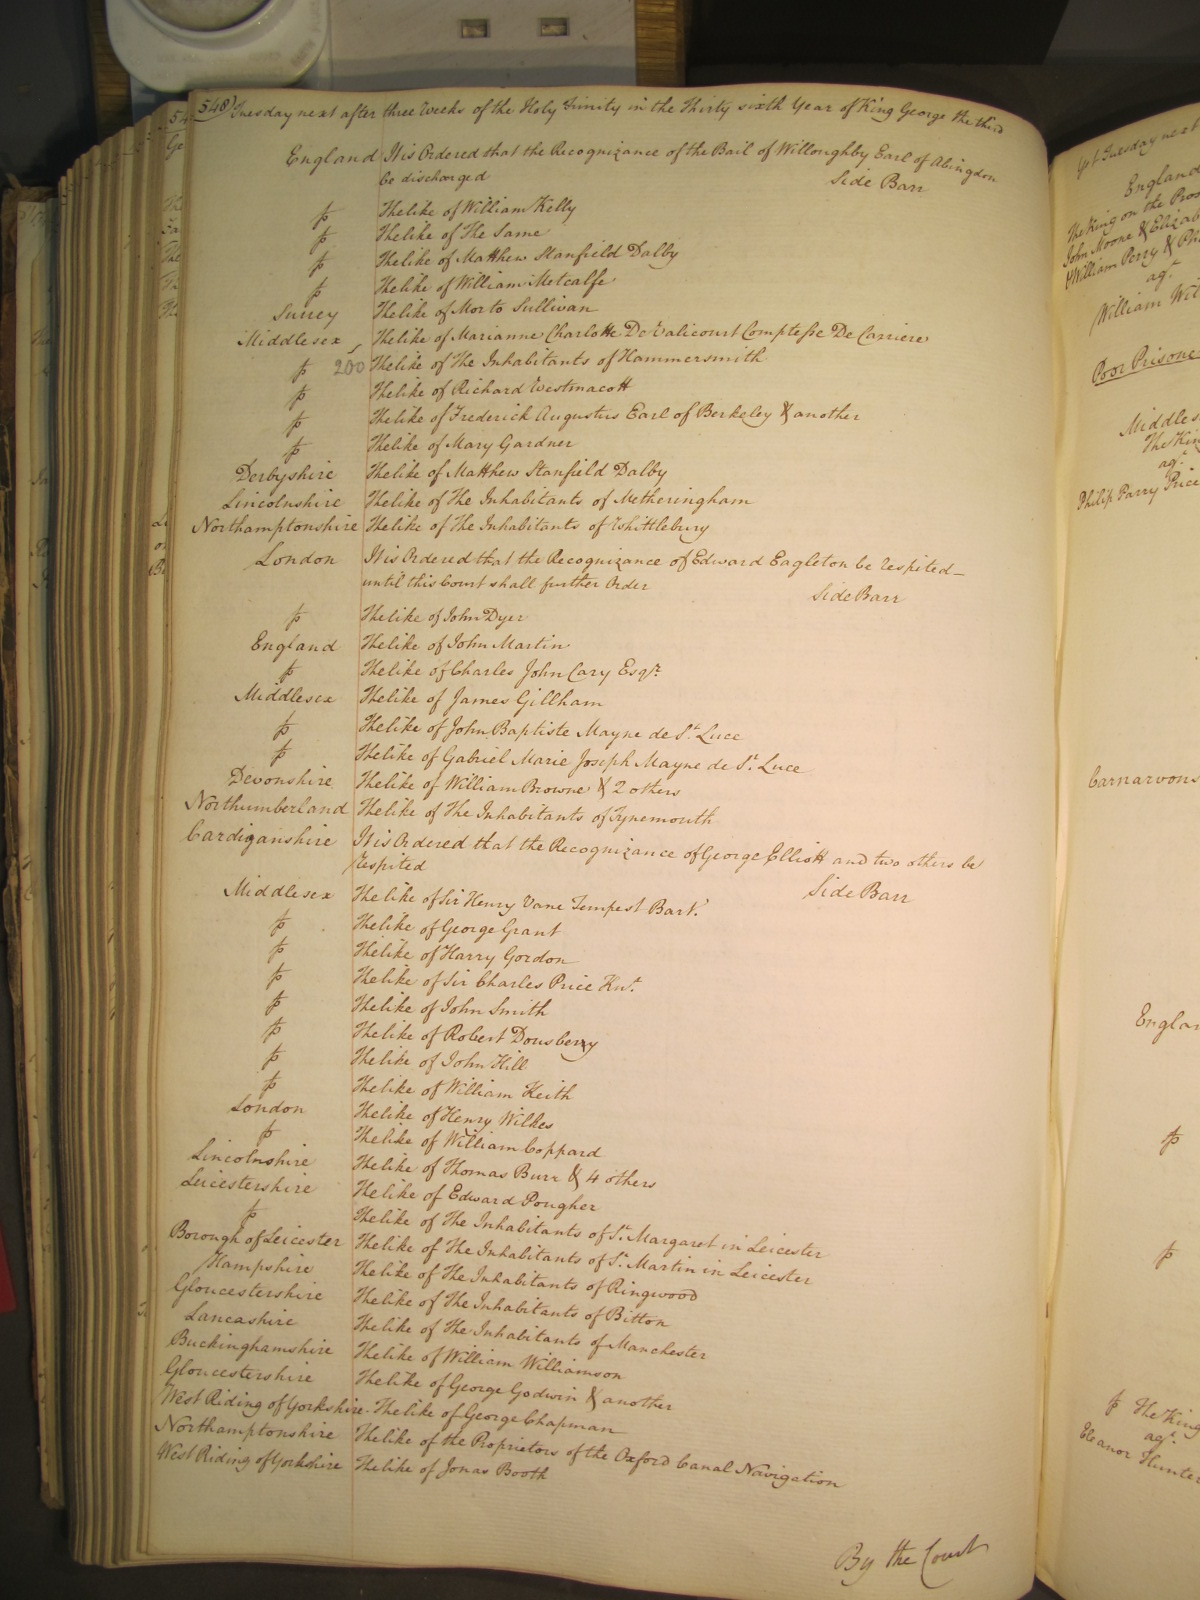 548) Tuesday next after three Weeks of the Holy Trinity in the Thirty sixth Year of King George the third
England It is Ordered that the Recognizance of the Bail of Willoughby Earl of Abingdon
be discharged Side Barr
The like of William Kelly
The like of The Same
The like of Matthew Stanfield Dalby
The like of William Metcalfe
Surrey The like of Morto Sullivan
Middlesex The like of Marianne Charlotte De Valicourt Comptesse De Carriere
200 The like of The Inhabitants of Hammersmith
The like of Richard Westmacott
The like of Frederick Augustus Earl of Berkeley & another
The like of Mary Gardner
Derbyshire The like of Matthew Stanfield Dalby
Lincolnshire The like of The Inhabitants of Metheringham
Northamptonshire The like of The Inhabitants of Whittlebury
London It is Ordered that the Recognizance of Edward Eagleton be respited
until this Court shall further Order Side Barr
The like of John Dyer
England The like of John Martin
The like of Charles John Cary Esqr.
Middlesex The like of James Gillham
The like of John Baptiste Mayne de St. Luce
The like of Gabriel Marie Joseph Mayne de St. Luce
Devonshire The like of William Browne & 2 others
Northumberland The like of The Inhabitants of Tynemouth
Cardiganshire It is Ordered that the Recognizance of George Elliott and two others be
respited Side Barr
Middlesex The like of Sir Henry Vane Tempest Bart.
The like of George Grant
The like of Harry Gordon
The like of Sir Charles Price Knt.
The like of John Smith
The like of Robert Dousberry
The like of John Hill
The like of William Keith
London The like of Henry Wilkes
The like of William Coppard
Lincolnshire The like of Thomas Burr & 4 others
Leicestershire The like of Edward Pougher
The like of The Inhabitants of St. Margaret in Leicester
Borough of Leicester The like of The Inhabitants of St. Martin in Leicester
Hampshire The like of The Inhabitants of Ringwood
Gloucestershire The like of The Inhabitants of Bitton
Lancashire The like of The Inhabitants of Manchester
Buckinghamshire The like of William Williamson
Gloucestershire The like of George Godwin & another
West Riding of Yorkshire The like of George Chapman
Northamptonshire The like of the Proprietors of the Oxford Canal Navigation
West Riding of Yorkshire The like of Jonas Booth
By the Court
Yet Tuesday next
England
The King on the Pros
John Moone & Elizab
William Perry &
agt.
William Wil
Poor Prisone
Middles
The Kin
agt.
Philip Parry Price
Carnarvons
Englan
The King
agt.
Eleanor Hunter